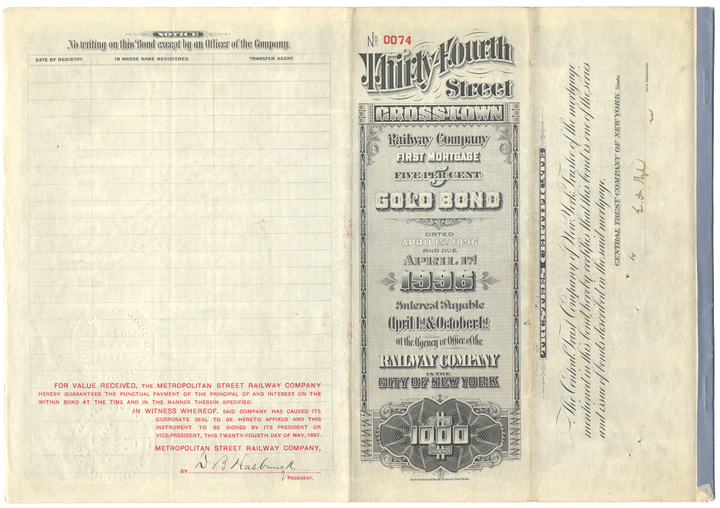 NOTICE
No writing on this Bond except by an Officer of the Company.
DATE OF REGISTRY. IN WHOSE NAME REGISTERED. TRANSFER AGENT.
FOR VALUE RECEIVED, THE METROPOLITAN STREET RAILWAY COMPANY
HEREBY GUARANTEES THE PUNCTUAL PAYMENT OF THE PRINCIPAL OF AND INTEREST ON THE
WITHIN BOND AT THE TIME AND IN THE MANNER THEREIN SPECIFIED.
IN WITNESS WHEREOF, SAID COMPANY HAS CAUSED ITS
CORPORATE SEAL TO BE HERETO AFFIXED AND THIS
INSTRUMENT TO BE SIGNED BY ITS PRESIDENT OR
VICE-PRESIDENT, THIS TWENTY-FOURTH DAY OF MAY, 1897.
METROPOLITAN STREET RAILWAY COMPANY,
BY D B Hasbrouck
PRESIDENT.
No 0074
Thirty-Fourth
Street
CROSSTOWN
Railway Company
FIRST MORTGAGE
FIVE PER CENT
5
GOLD BOND
DATED
APRIL 1st 1896
AND DUE
APRIL 1st
1996
Interest Payable
April 1st & October 1st
at the Agency or Office of the
RAILWAY COMPANY
IN THE
CITY OF NEW YORK
$
1000
TRUSTEES CERTIFICATE
The Central Trust Company of New York, Trustee of the mortgage
mentioned in this bond, hereby certifies that this bond is one of the series
and issue of bonds described in the said mortgage.
CENTRAL TRUST COMPANY OF NEW YORK, Trustee
By